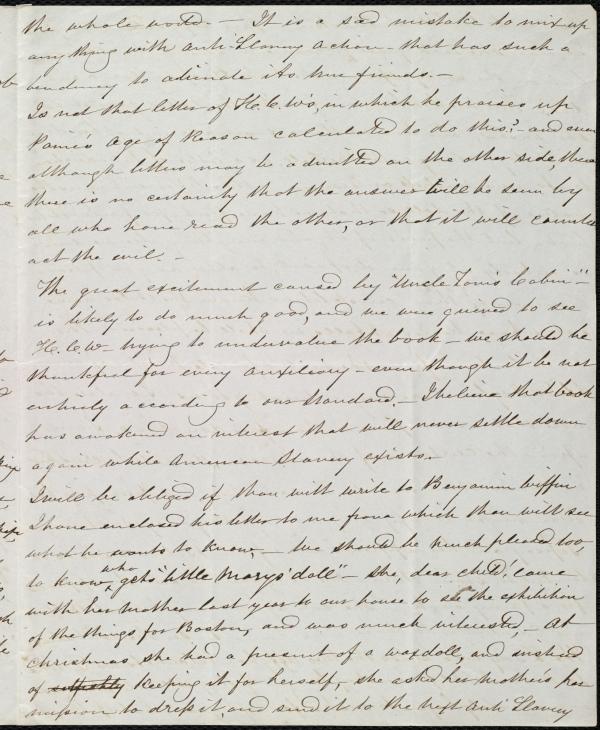 the whole world. — It is a sad mistake to mix up
any thing with Anti-Slavery action — that has such a
tendency to alienate its true friends. —
Is not that letter of H. C. W's, in which he praises up
Paine's Age of Reason calculated to do this? — and even
although letters may be admitted on the other side, there
there is no certainty that the answer will be seen by
all who have read the other, or that it will counter
act the evil. —
The great excitement caused by "Uncle Tom's Cabin" —
is likely to do much good, and we were grieved to see
H. C. W — trying to undervalue the book — we should be
thankful for every auxiliary — even though it be not
entirely according to our standard. — I believe that book
has awakened an interest that will never settle down
again while American Slavery exists. —
I will be obliged if thou wilt write to Benjamin
I have enclosed his letter to me from which thou wilt see
what he wants to know, — We should be much pleased too,
to know who gets "little Mary's doll" — she, dear child! came
with her mother last year to our house to see the exhibition
of the things for Boston, and was much interested, — At
Christmas she had a present of a wax doll, and instead
of selfishly keeping it for herself, she asked her mother's per
mission to dress it, and send it to the next Anti Slavery